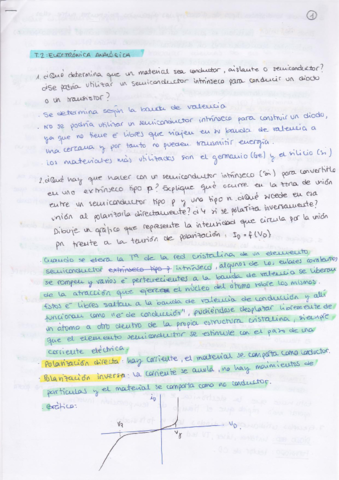 1
T.2 ELECTRÓNICA ANALÓGICA
1. ¿Qué determina que un material sea conductor, aislante o semiconductor?
¿Se podría utilizar un semiconductor intrínseco para conducir un diodo
o un transistor?
- Se determina según la banda de valencia
- No se podría utilizar un semiconductor intrínseco para construir un diodo,
ya que no tiene e⁻ libres que viajen en la banda de valencia a
una cercana y por tanto no pueden transmitir energía.
Los materiales más utilizados son el germanio (Ge) y el silicio (Si)
2. ¿Qué hay que hacer con un semiconductor intrínseco (Si) para convertirlo
en uno extrínseco tipo p? Explique qué ocurre en la zona de unión
entre un semiconductor tipo p y uno tipo n. ¿Qué sucede en esa
unión al polarizarla directamente? ¿Y si se polariza inversamente?
Dibuje un gráfico que represente la intensidad que circula por la unión
pn frente a la tensión de polarización: ID = f(VD)
Cuando se eleva la Tª de la red cristalina de un elemento
semiconductor extrínseco tipo p intrínseco, algunos de los enlaces covalentes
se rompen y varios e⁻ pertenecientes a la banda de valencia se liberan
de la atracción que ejerce el núcleo del átomo sobre los mismos.
Estos e⁻ libres saltan a la banda de conducción y allí
funcionan como "e⁻ de conducción", pudiéndose desplazar libremente de
un átomo a otro dentro de la propia estructura cristalina, siempre
que el elemento semiconductor se estimule con el paso de una
corriente eléctrica.
Polarización directa: hay corriente, el material se comporta como conductor.
Polarización inversa: la corriente se anula, no hay movimiento de
partículas y el material se comporta como no conductor.
Gráfico:
iD
VD